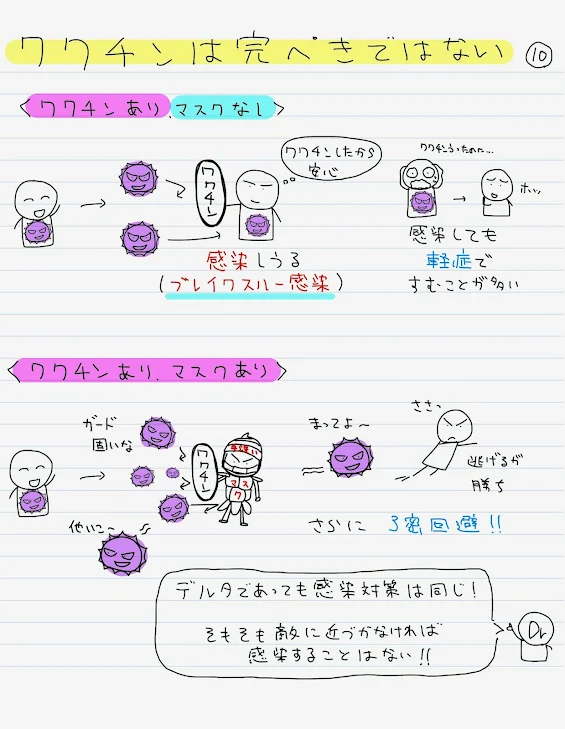 ワクチンは完ぺきではない
10
ワクチンあり.マスクなし
ワクチンしたから
安心
ワクチン
ワクチンうったのに…
ホッ
感染しうる
(ブレイクスルー感染)
感染しても
軽症で
すむことが多い
ワクチンあり.マスクあり
ガード
固いな
他いこ〜
ワクチン
手洗い
マス
ク
まってよ〜
ささっ
逃げるが
勝ち
さらに 3密回避!!
デルタであっても感染対策は同じ!
そもそも敵に近づかなければ
感染することはない!!
Dr